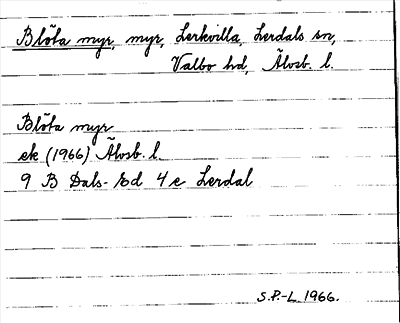 Blöta myr, myr, Lerkvilla, Lerdals sn,
Valbo hd, Älvsb. l.
Blöta myr
ek (1966) Älvsb. l.
9 B Dals-Ed 4 e Lerdal
S.P.-L. 1966.